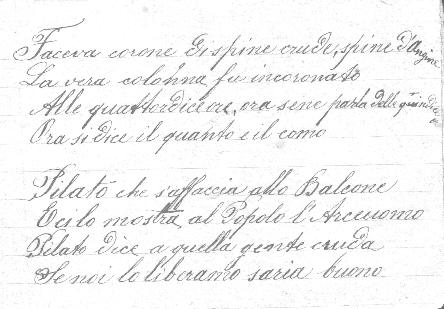 Faceva corone di spine crude, spine d'Angine
La vera colonna fu incoronato
Alle quattordici ore, ora sene parla delle quindici
Ora si dice il quanto e il como
Pilato che s'affaccia allo Balcone
E ci lo mostra al Popolo l'Arceuomo
Pilato dice a quella gente cruda
Se noi lo liberamo saria buono